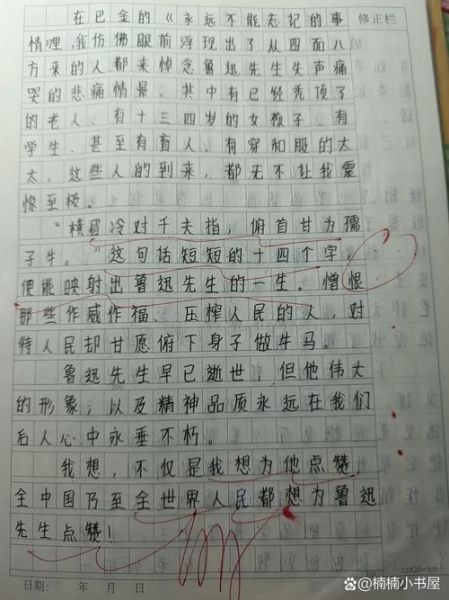 在巴金的《永远不能忘记的事
修正栏
情哩，我仿佛眼前浮现出了从四面八
方来的人都来悼念鲁迅先生失声痛
哭的悲痛情景，其中有已经秃顶了
的老人、有十三四岁的女孩子、有
学生、甚至有盲人、有穿和服的太
太，这些人的到来，都无不让我震
惊至极。
“横眉冷对千夫指，俯首甘为孺
子牛。”这句话短短的十四个字
便能映射出鲁迅先生的一生。憎恨
那些作威作福、压榨人民的人，对
待人民却甘愿俯下身子做牛马。
鲁迅先生早已逝世，但他伟大
的形象，以及精神品质永远在我们
后人心中永垂不朽。
我想，不仅是我想为他点赞
全中国乃至全世界人民都想为鲁迅
先生点赞！
15X20=300
日期： 年 月 日
@楠楠小书屋